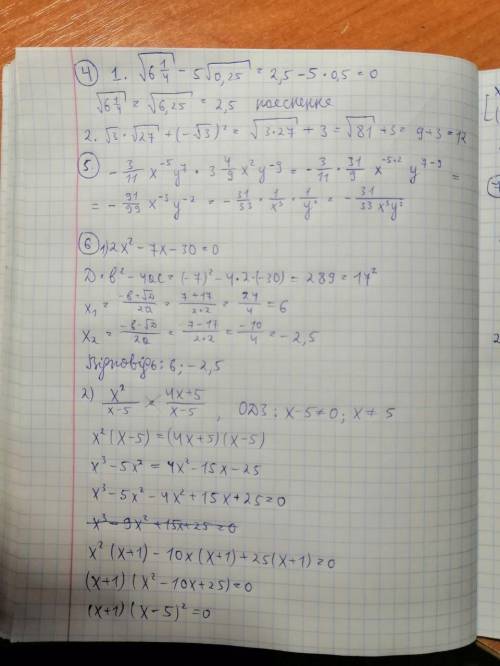 ④ 1. √(6 1/4) - 5√(0,25) = 2,5 - 5·0,5 = 0
√(6 1/4) = √(6,25) = 2,5 пояснення
2. √3 · √27 + (-√3)² = √(3·27) + 3 = √81 + 3 = 9+3 = 12
⑤ - 3/11 x⁻⁵y⁷ · 3 4/9 x²y⁻⁹ = - 3/11 · 31/9 x⁻⁵⁺² y⁷⁻⁹ =
= - 31/33 x⁻³y⁻² = - 31/33 · 1/x³ · 1/y² = - 31/33x³y²
⑥ 1) 2x² - 7x - 30 = 0
D = b² - 4ac = (-7)² - 4·2·(-30) = 289 = 17²
x₁ = (-b+√D)/2a = (7+17)/2·2 = 24/4 = 6
x₂ = (-b-√D)/2a = (7-17)/2·2 = -10/4 = -2,5
Відповідь: 6; -2,5
2) x²/(x-5) = (4x+5)/(x-5), ОДЗ: x-5≠0; x≠5
x²(x-5) = (4x+5)(x-5)
x³-5x² = 4x²-15x-25
x³-5x²-4x²+15x+25=0
x³-9x²+15x+25=0
x²(x+1)-10x(x+1)+25(x+1)=0
(x+1)(x²-10x+25)=0
(x+1)(x-5)²=0